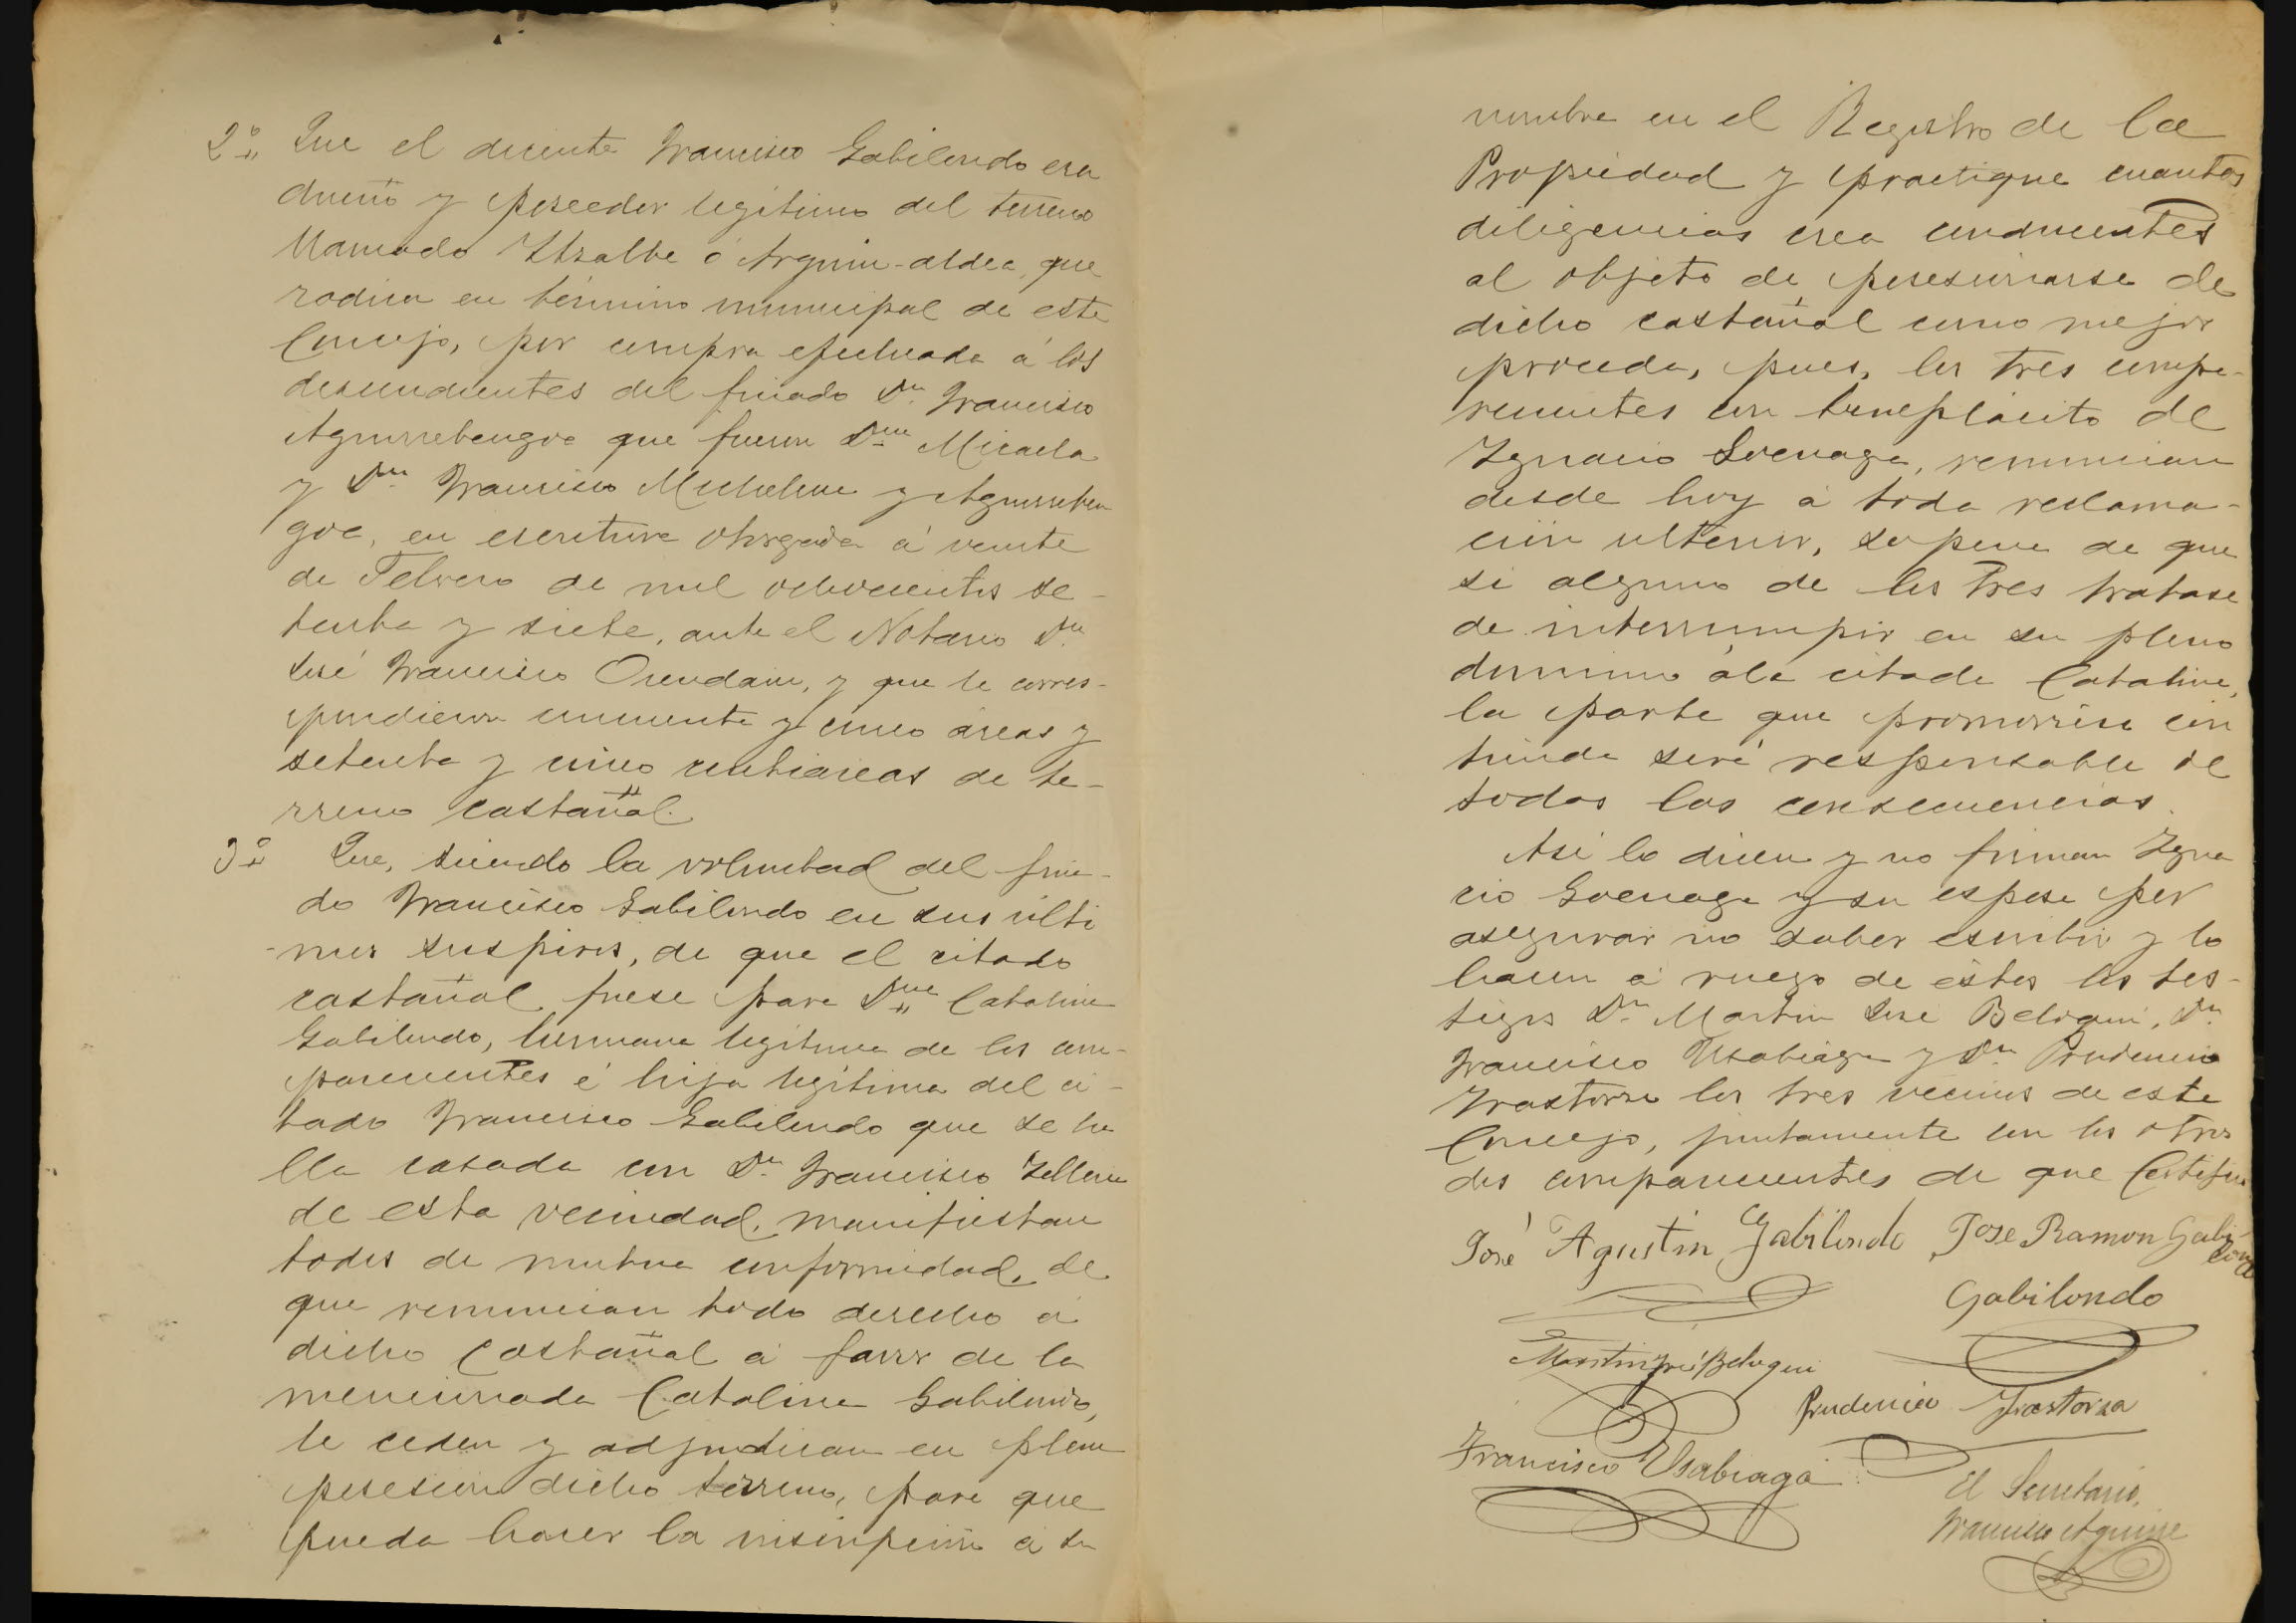 2º Que el dicente Francisco Gabilondo era
dueño y poseedor legítimo del terreno
llamado Itzalbe ó Arguin-aldea, que
radica en término municipal de este
Concejo, por compra efectuada á los
descendientes del finado Dn. Francisco
Aguirrebengoa que fueron Dña Micaela
y Dn. Francisco Michelena y Aguirreben
goa, en escritura otorgada á veinte
de Febrero de mil ochocientos se-
tenta y siete, ante el Notario Dn.
José Francisco Orendain, y que le corres-
pondieron cincuenta y cinco áreas y
setenta y cinco centiáreas de te-
rreno castañal.
3º Que, siendo la voluntad del fina-
do Francisco Gabilondo en sus últi
-mos suspiros, de que el citado
castañal fuese para Dña Catalina
Gabilondo, hermana legítima de los com-
parecientes é hija legítima del ci-
tado Francisco Gabilondo que se ha
lla casada con Dn. Francisco
de esta vecindad, manifiestan
todos de mutua conformidad, de
que renuncian todo derecho á
dicho Castañal á favor de la
mencionada Catalina Gabilondo,
le ceden y adjudican en plena
posesión dicho terreno, para que
pueda hacer la inscripción á su
nombre en el Registro de la
Propiedad y practique cuantas
diligencias crea conducentes
al objeto de posesionarse de
dicho castañal como mejor
proceda, pues, los tres compa-
recientes con beneplácito de
Ignacio Goenaga, renuncian
desde hoy á toda reclama-
ción ulterior, so pena de que
si alguno de los tres tratase
de interrumpir en su pleno
dominio á la citada Catalina,
la parte que promoviese con
tienda será responsable de
todas las consecuencias.
Así lo dicen y no firman Igna
cio Goenaga y su esposa por
asegurar no saber escribir y lo
hacen á ruego de éstos los tes-
tigos Dn. Martin José Beloqui, Dn.
Francisco Usabiaga y Dn. Prudencio
Irastorza los tres vecinos de este
Concejo, juntamente con los otros
dos comparecientes de que Certifico
José Agustin Gabilondo Jose Ramon Gabi
londo
Gabilondo
Martin José Beloqui
Prudencio Irastorza
Francisco Usabiaga
El Secretario,
Francisco Aguirre